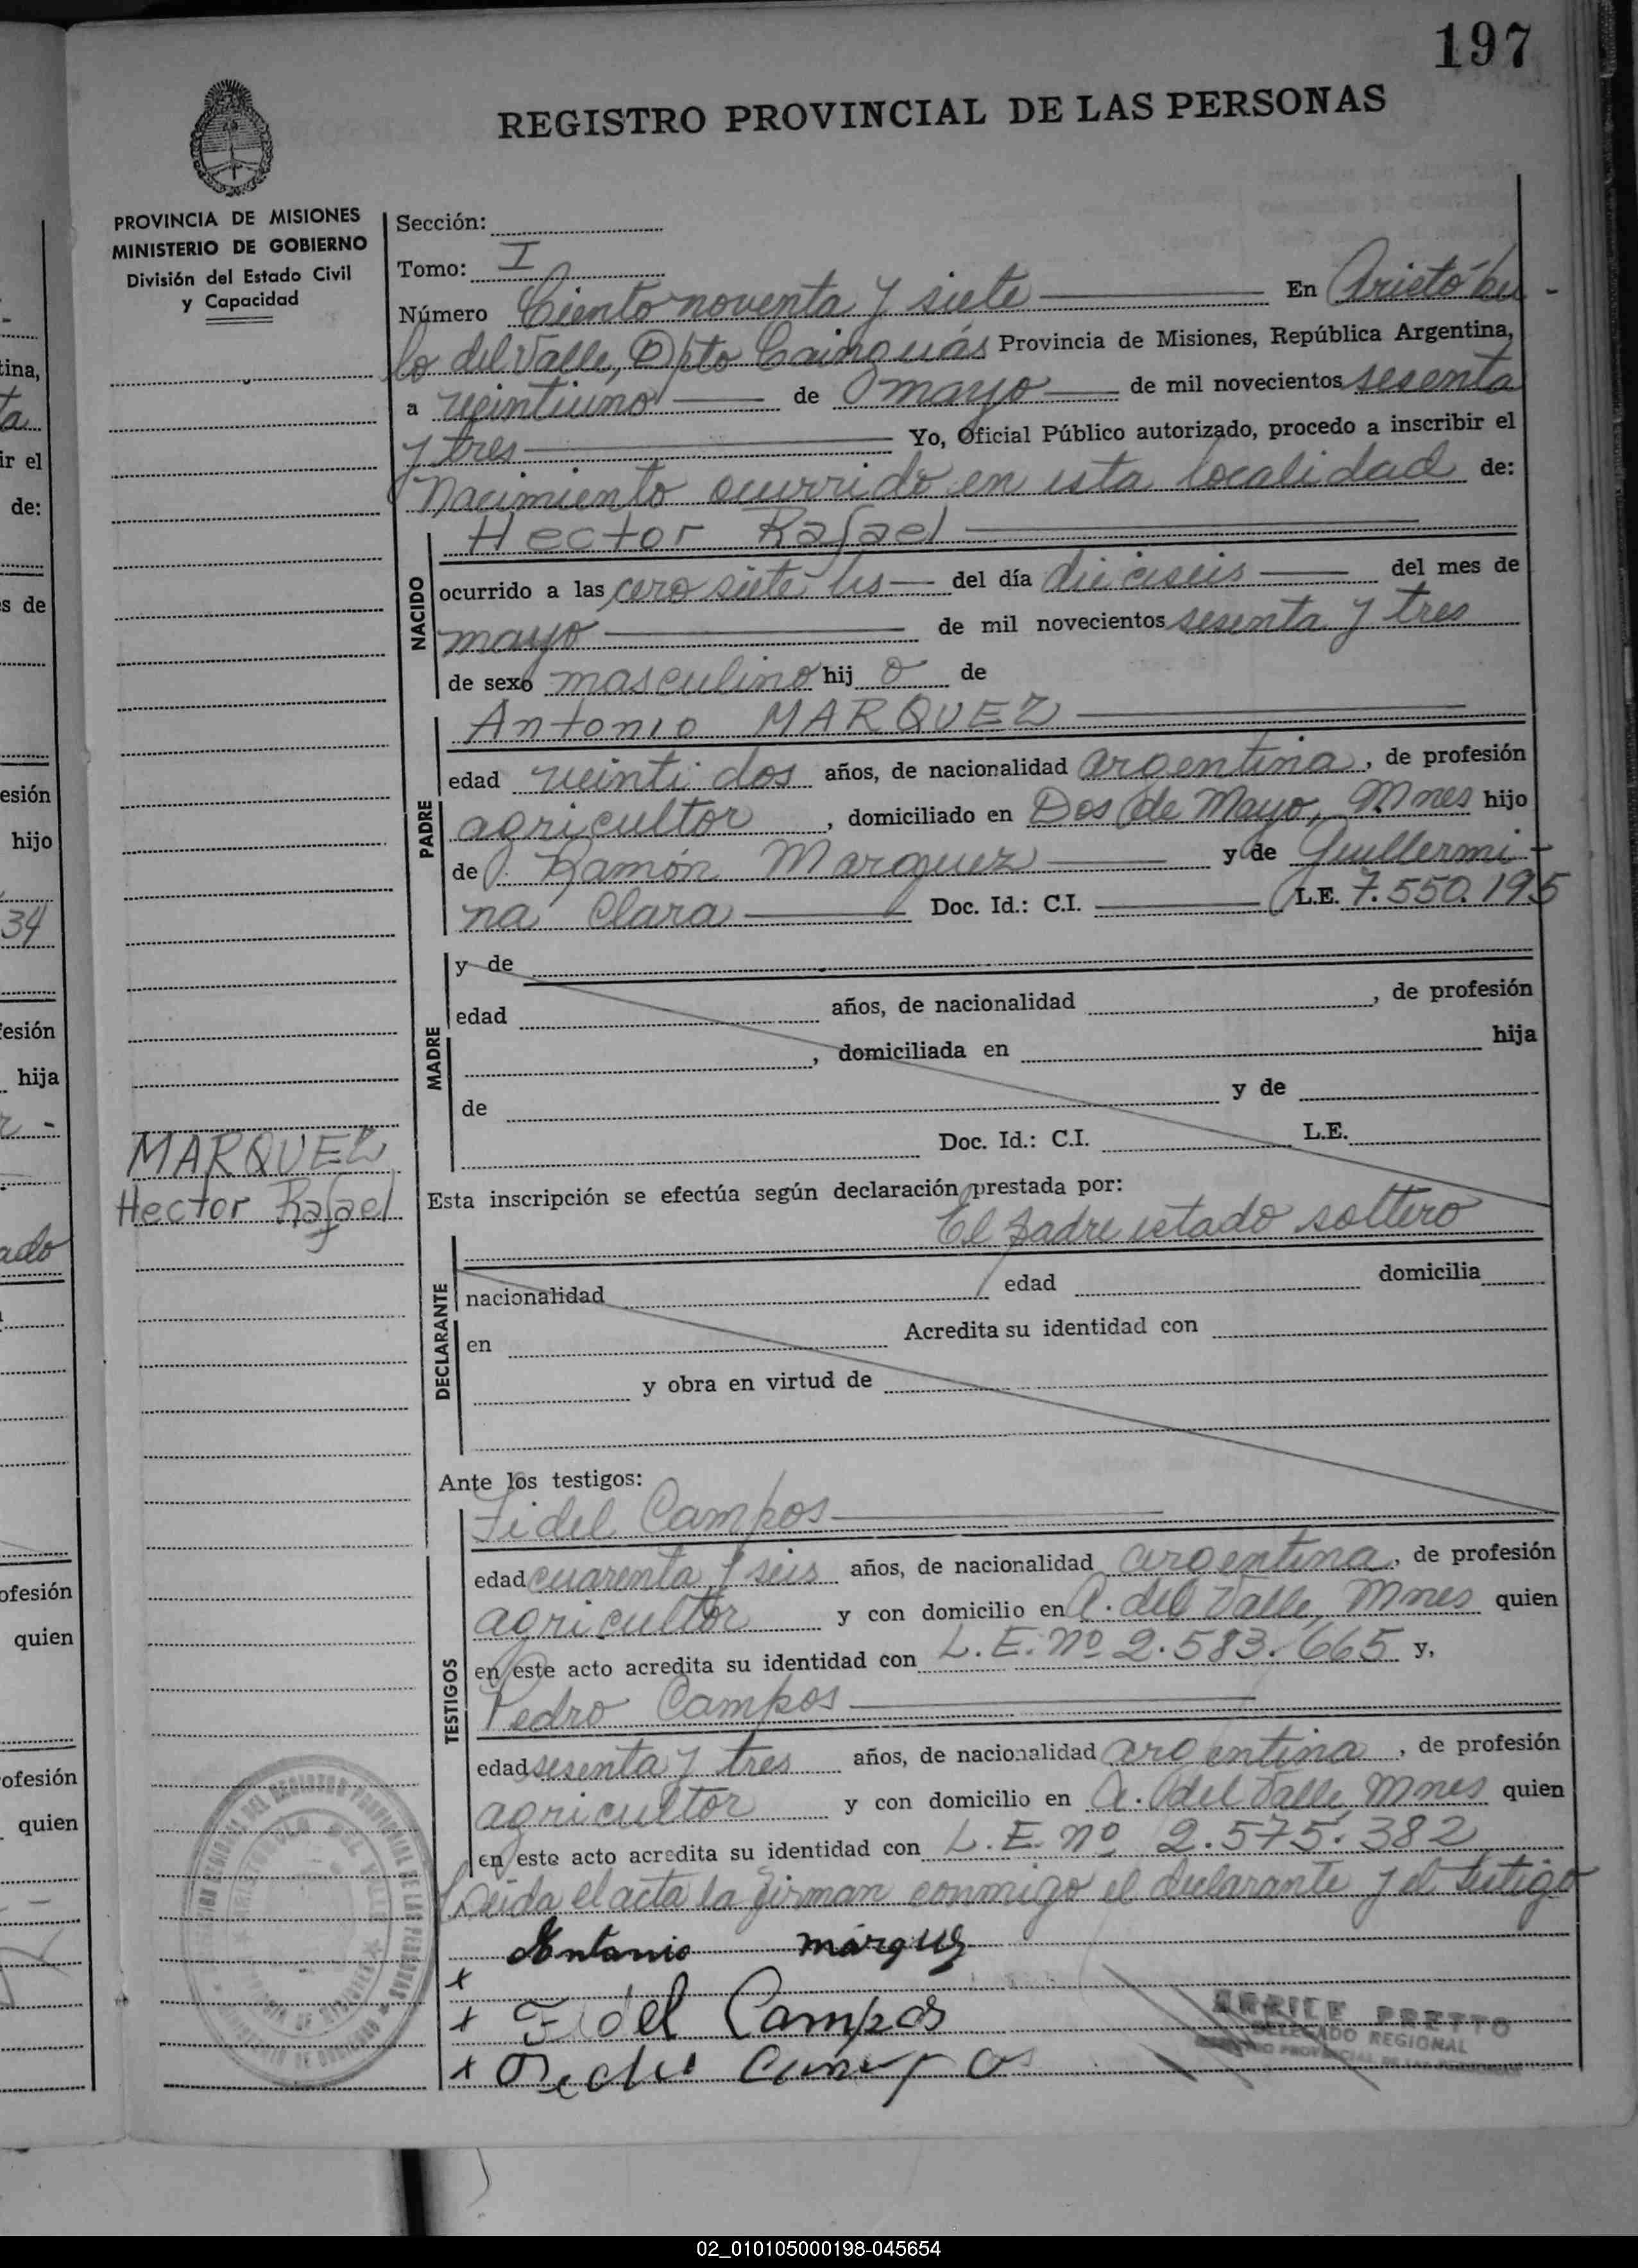 197
REGISTRO PROVINCIAL DE LAS PERSONAS
PROVINCIA DE MISIONES
MINISTERIO DE GOBIERNO
División del Estado Civil
y Capacidad
Sección:
Tomo: I
Número Ciento noventa y siete En Aristóbu-
lo del Valle, Dpto Cainguás Provincia de Misiones, República Argentina,
a veintiuno de mayo de mil novecientos sesenta
y tres Yo, Oficial Público autorizado, procedo a inscribir el
Nacimiento ocurrido en esta localidad de:
Hector Rafael
NACIDO
ocurrido a las cero siete hs del día dieciseis del mes de
mayo de mil novecientos sesenta y tres
de sexo masculino hij o de
Antonio MARQUEZ
PADRE
edad veinti dos años, de nacionalidad argentina, de profesión
agricultor, domiciliado en Dos de Mayo, Mnes hijo
de Ramón Marquez y de Guillermi-
na Clara Doc. Id.: C.I. L.E. 7.550.195
MADRE
y de
edad años, de nacionalidad , de profesión
, domiciliada en hija
de y de
Doc. Id.: C.I. L.E.
MARQUEZ
Hector Rafael
Esta inscripción se efectúa según declaración prestada por:
El padre estado soltero
DECLARANTE
nacionalidad edad domicilia
en Acredita su identidad con
y obra en virtud de
Ante los testigos:
Fidel Campos
TESTIGOS
edad cuarenta y seis años, de nacionalidad argentina, de profesión
agricultor y con domicilio en A. del Valle, Mnes quien
en este acto acredita su identidad con L.E. nº 2.583.665 y,
Pedro Campos
edad sesenta y tres años, de nacionalidad argentina, de profesión
agricultor y con domicilio en A. del Valle, Mnes quien
en este acto acredita su identidad con L.E. nº 2.575.382
Leida el acta la firman conmigo el declarante y el testigo
Antonio márquez
x
x Fidel Campos
x Pedro Campos
PRETTO
DELEGADO REGIONAL
02_010105000198-045654